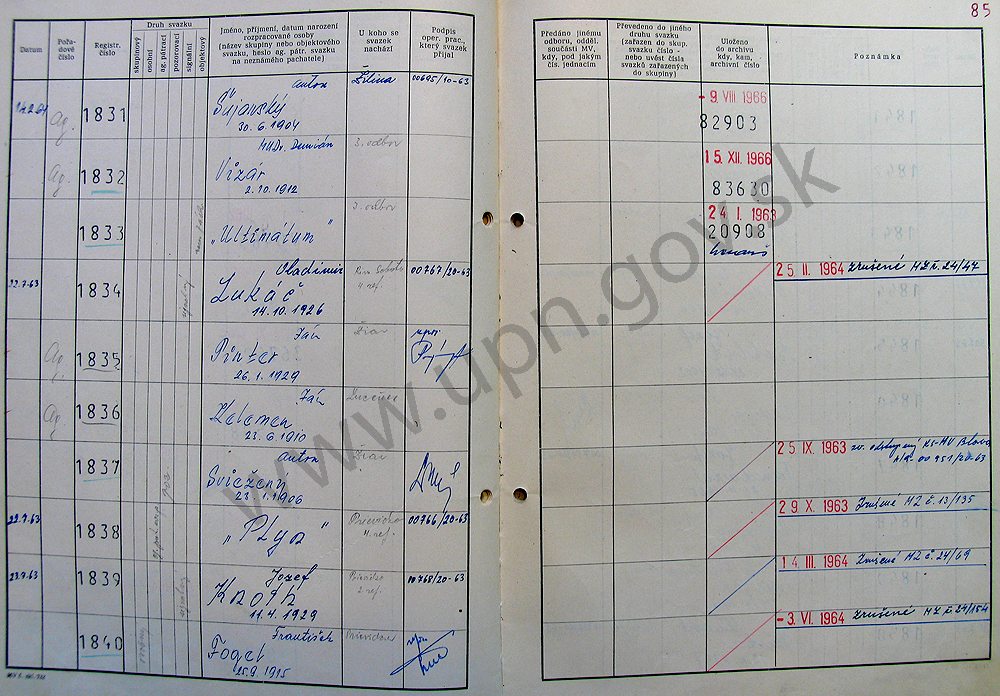 85
Datum
Pořadové číslo
Registr. číslo
Druh svazku
skupinový
osobní
ag. pátrací
pozorovací
signální
objektový
Jméno, příjmení, datum narození
rozpracované osoby
(název skupiny nebo objektového
svazku, heslo ag. pátr. svazku
na neznámého pachatele)
U koho se
svazek
nachází
Podpis
oper. prac.,
který svazek
přijal
Předáno jinému
odboru, odděl.
součásti MV,
kdy, pod jakým
čís. jednacím
Převedeno do jiného
druhu svazku
(zařazen do skup.
svazku číslo -
nebo uvést čísla
svazků zařazených
do skupiny)
Uloženo
do archivu
kdy, kam,
archivní číslo
Poznámka
Ag. 1831 Anton Šujanský 30.6.1904 Žilina 00695/10-63
- 9. VIII. 1966
82903
Ag. 1832 MUDr. Demián Vizár 2.10.1912 3. odbor
15. XII. 1966
83630
1833 „Ultimátum" 3. odbor
24 I. 1963
20908
22.7.63 1834 Vladimír Lukáč 14.10.1926 Rim Sobota 00767/20-63
25. II. 1964 Zrušené MZ č. 24/47
Ag. 1835 Ján Pinter 26.1.1929 Žiar
Ag. 1836 Ján Kelemen 23.6.1910 Lučenec
1837 Anton Sviežený 23.1.1906 Žiar
25 IX. 1963 zv. odstúpený KS-MV Blava
22.7.63 1838 „Plyn" Prievidza 4. ref. 00766/20-63
29. X. 1963 Zrušené MZ č. 13/135
23.7.63 1839 Jozef Knoth 11.4.1929 Prievidza 2 ref. 00768/20-63
14. III. 1964 Zrušené MZ č. 24/69
1840 František Fogel 25.9.1915 Prievidza
- 3. VI. 1964 Zrušené MZ č. 24/154
www.upn.gov.sk